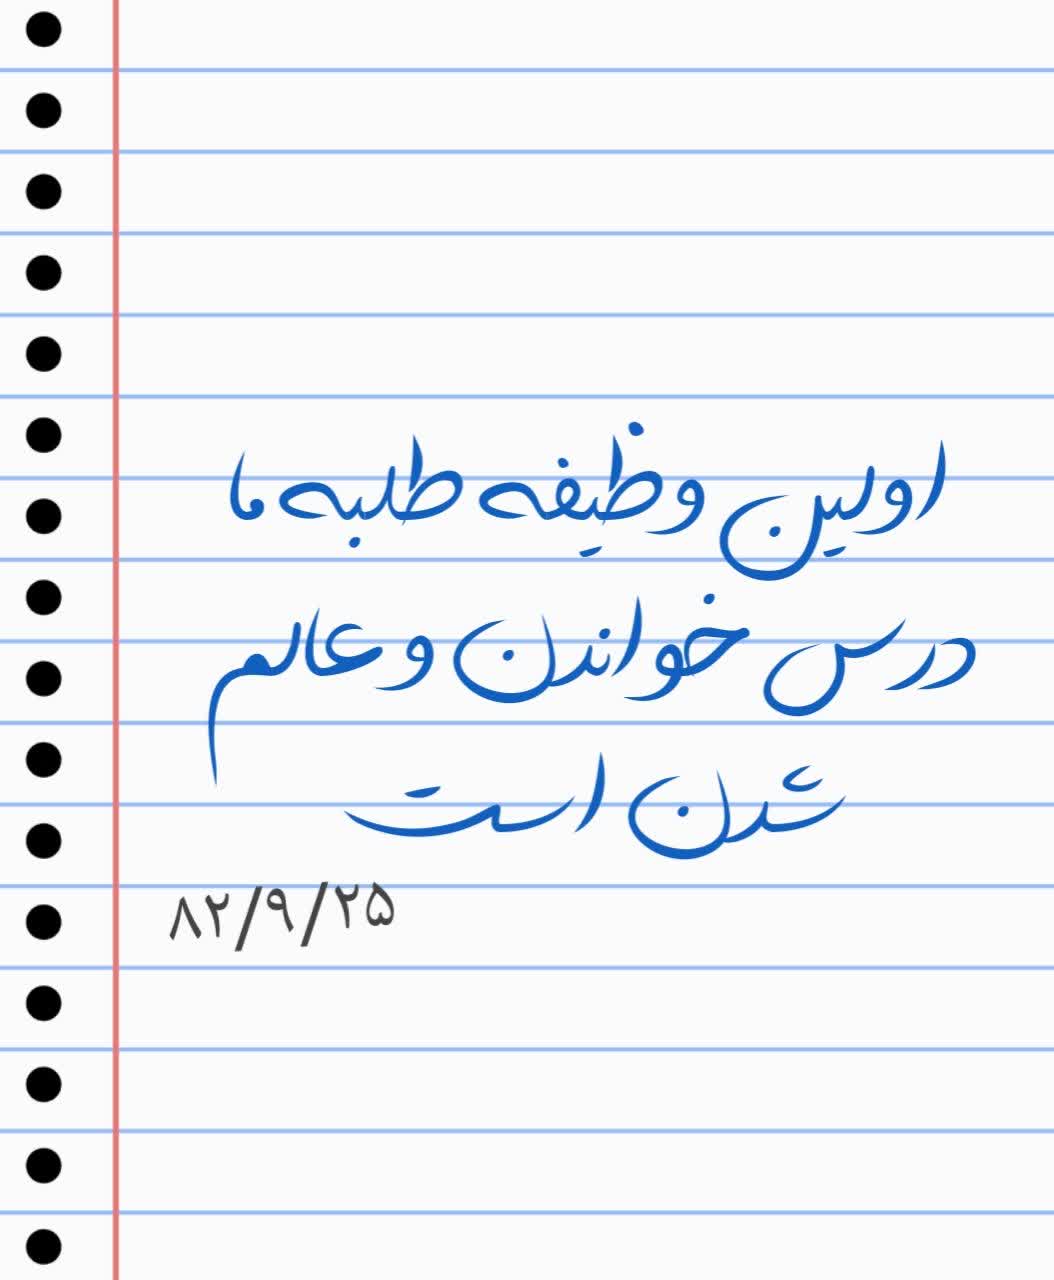 اولین وظیفه طلبه ما
درس خواندن و عالم
شدن است
۸۲/۹/۲۵